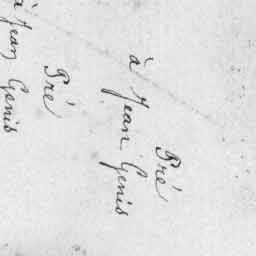 Pré
à Jean Genis
Pré
à Jean Genis